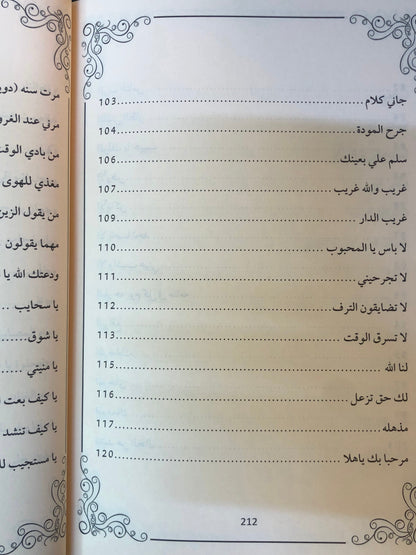 جاني كلام ........ 103
جرح المودة ........ 104
سلم علي بعينك ........ 106
غريب والله غريب ........ 107
غريب الدار ........ 109
لا باس يا المحبوب ........ 110
لا تجرحيني ........ 111
لا تضايقون الترف ........ 112
لا تسرق الوقت ........ 113
لنا الله ........ 115
لك حق تزعل ........ 116
مذهله ........ 117
مرحبا بك ياهلا ........ 120
212
مرت سنه
مرني عند
من بادي الوقت
مغذي للهوى
من يقول الزين
مهما يقولون
ودعتك الله يا
يا سحايب ..
يا شوق ......
يا منيتي .....
يا كيف بعت
يا كيف تنشد
يا مستجيب